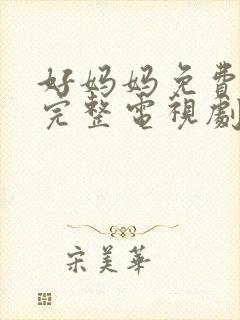 好妈妈免費
完整電視劇
宋美華